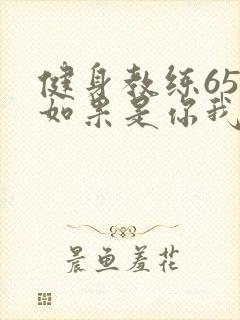 健身教练65
如果是你我
晨鱼羞花